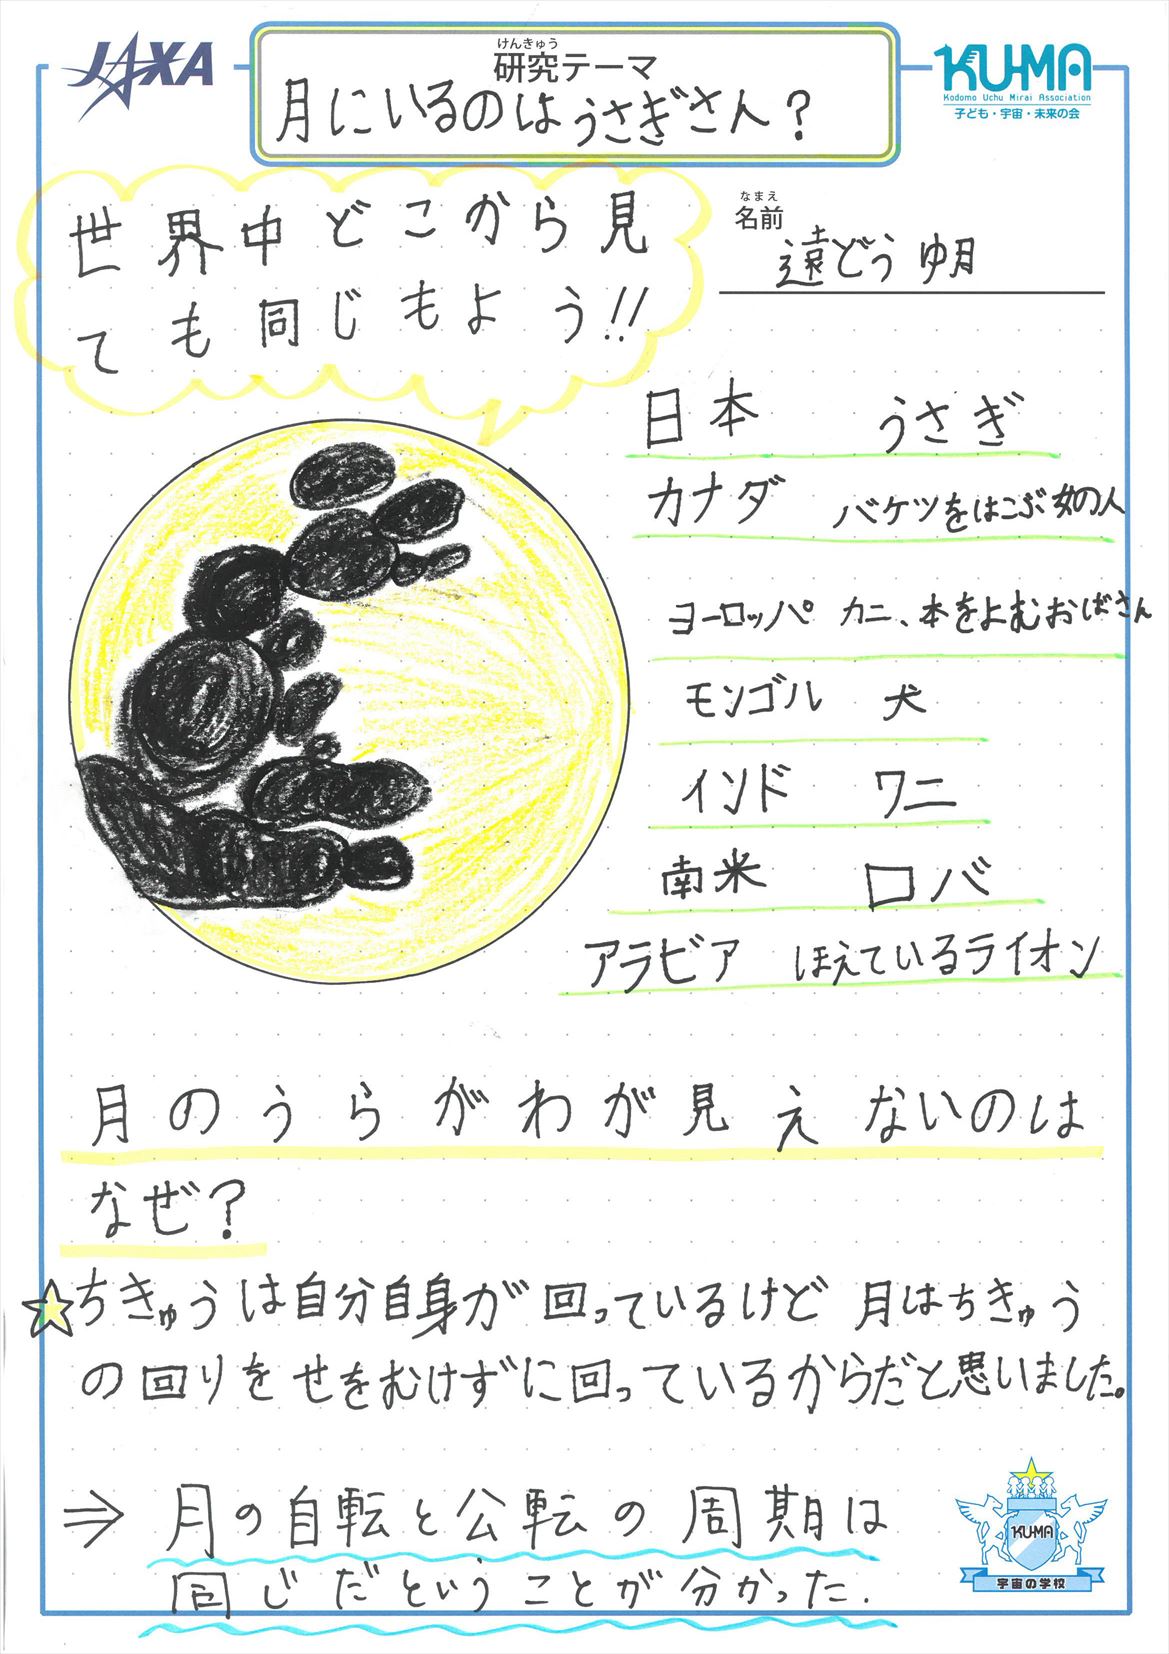 JAXA
けんきゅう
研究テーマ
月にいるのはうさぎさん?
KU-MA
Kodomo Uchu Mirai Association
子ども・宇宙・未来の会
世界中どこから見
ても同じもよう!!
なまえ
名前
遠どう ゆ月
日本 うさぎ
カナダ バケツをはこぶ女の人
ヨーロッパ カニ、本をよむおばさん
モンゴル 犬
インド ワニ
南米 ロバ
アラビア ほえているライオン
月のうらがわが見えないのは
なぜ?
☆ちきゅうは自分自身が回っているけど 月はちきゅう
の回りをせをむけずに回っているからだと思いました。
⇒月の自転と公転の周期は
同じだということが分かった.
KU-MA
宇宙の学校